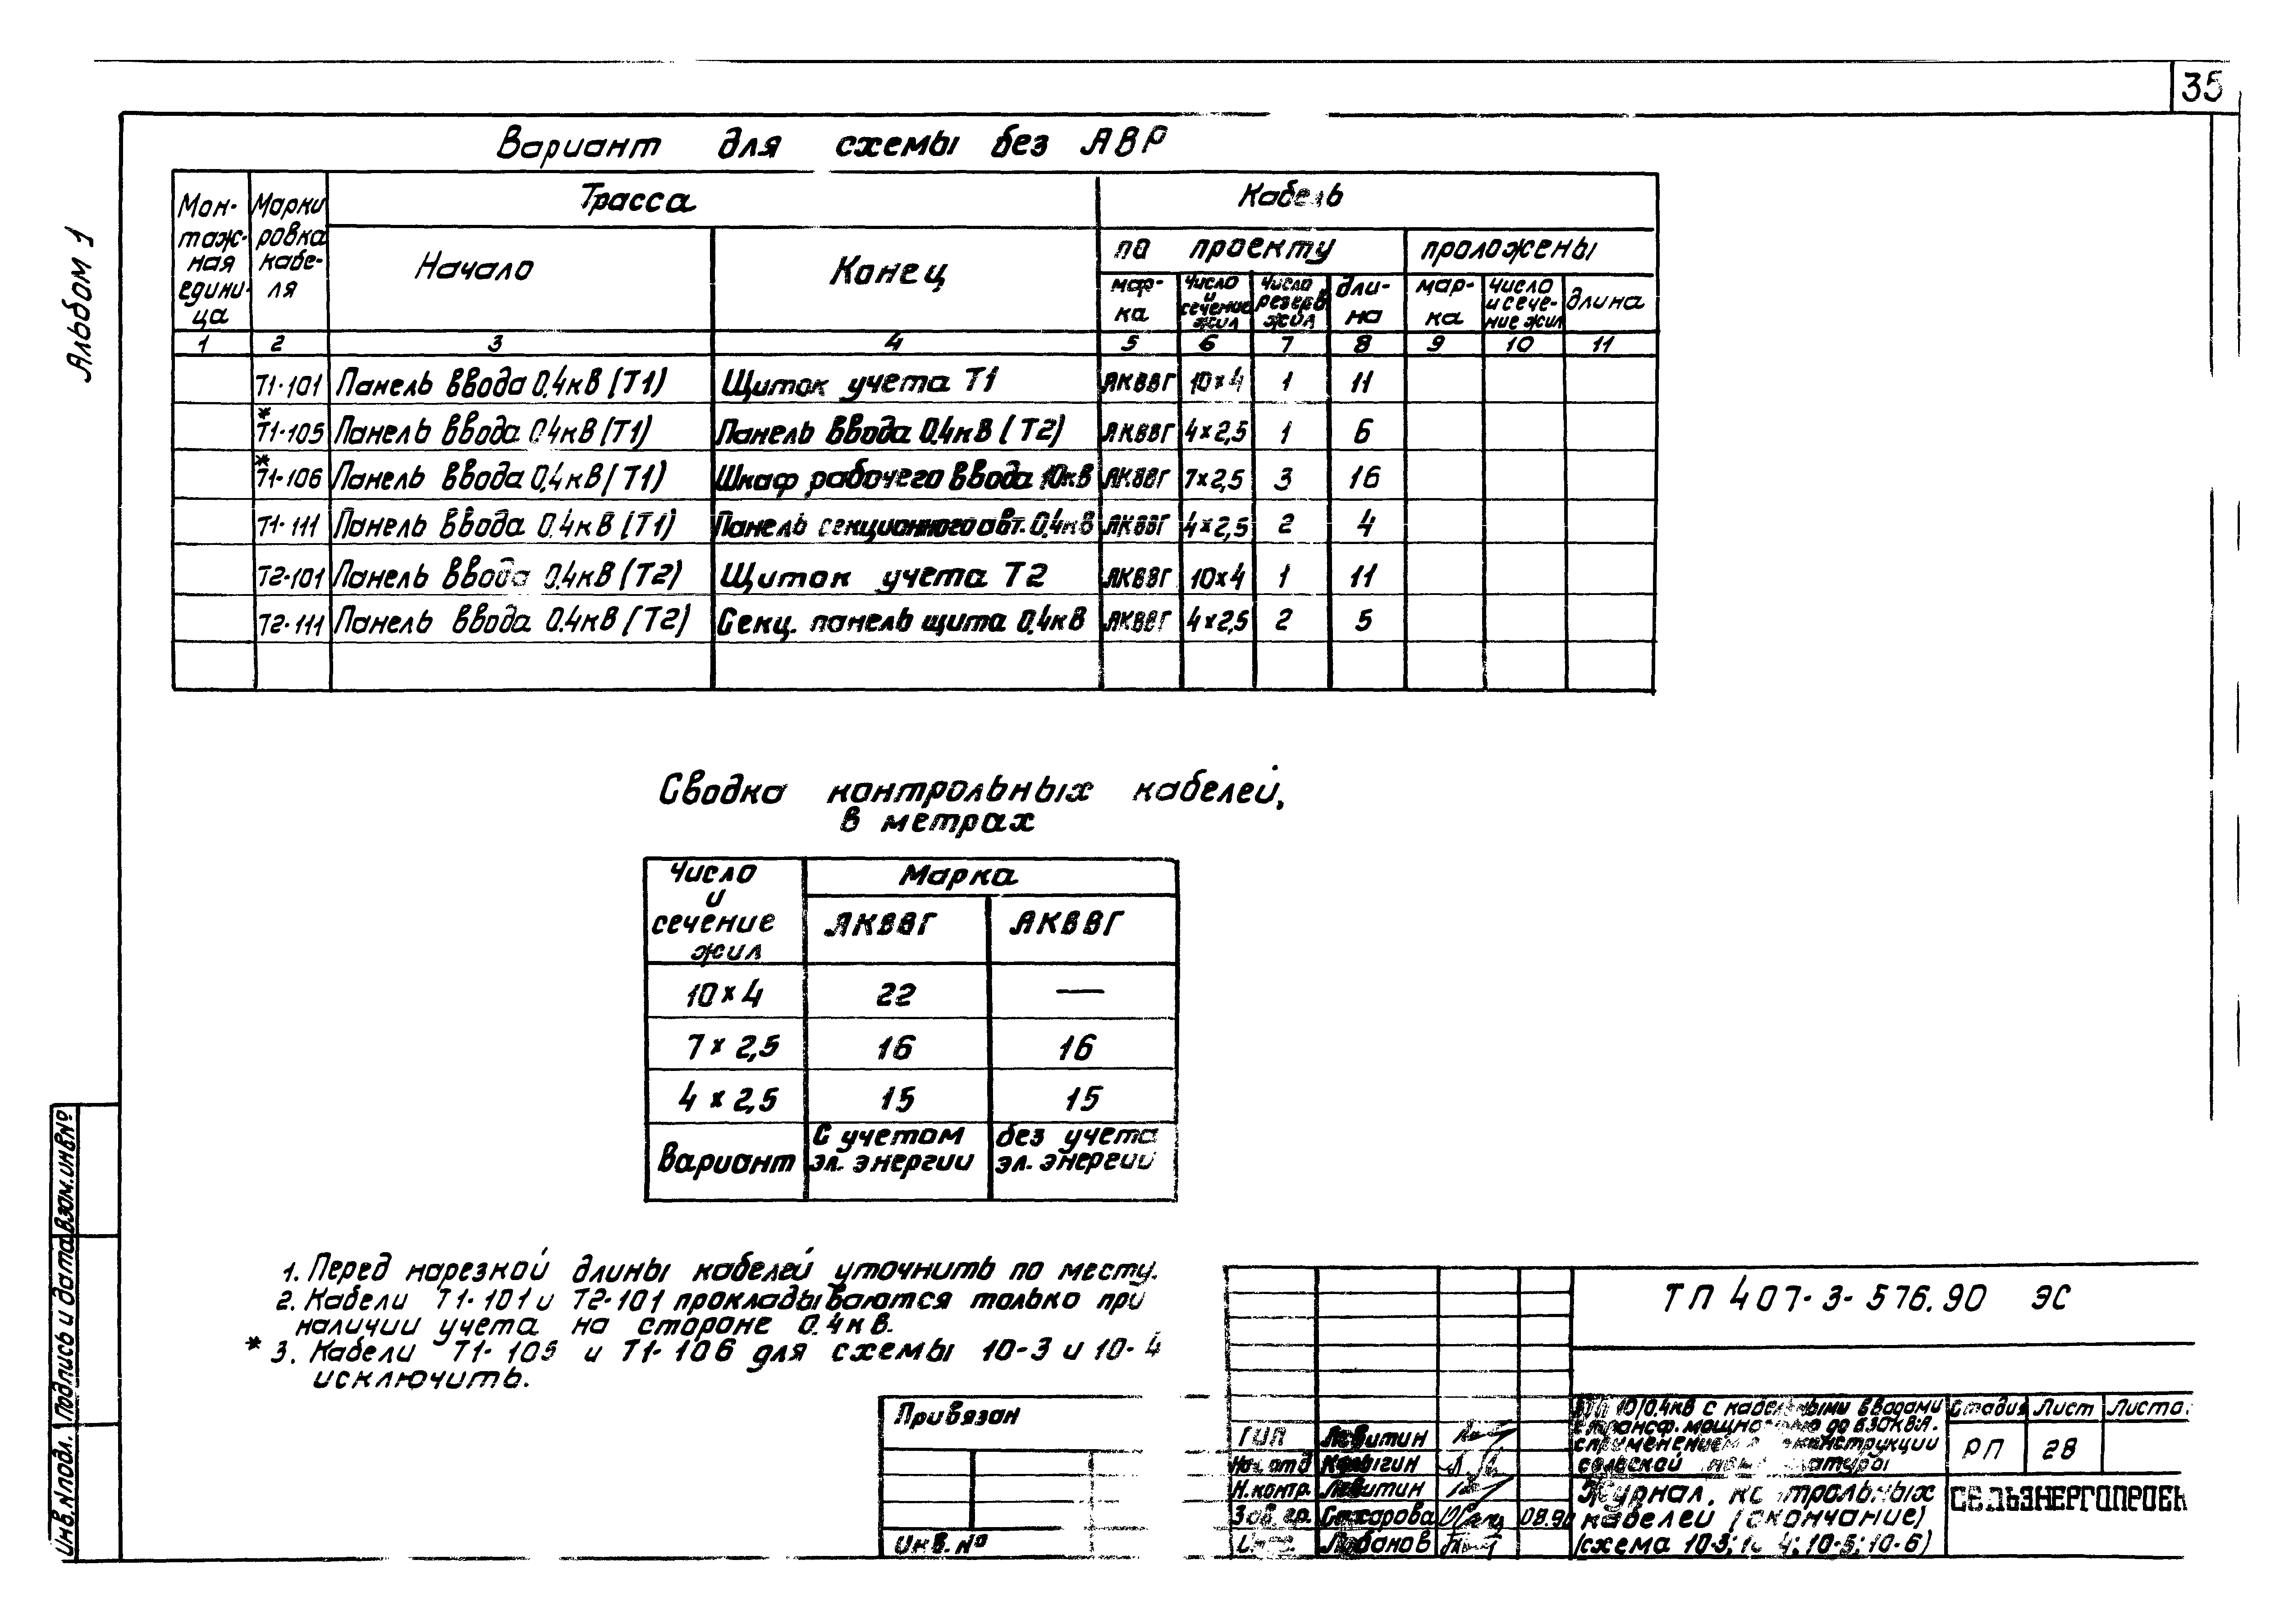 35
Альбом 1
Вариант для схемы без АВР
Монтажная единица | Маркировка кабеля | Трасса | Кабель
Начало | Конец | по проекту | проложены
марка | число и сечение жил | число резерв жил | длина | марка | число и сечение жил | длина
1 2 3 4 5 6 7 8 9 10 11
Т1-101 Панель ввода 0.4кВ (Т1) Щиток учета Т1 АКВВГ 10×4 1 11
* Т1-105 Панель ввода 0.4кВ (Т1) Панель ввода 0.4кВ (Т2) АКВВГ 4×2,5 1 6
* Т1-106 Панель ввода 0.4кВ (Т1) Шкаф рабочего ввода 10кВ АКВВГ 7×2,5 3 16
Т1-111 Панель ввода 0.4кВ (Т1) Панель секционного авт. 0.4кВ АКВВГ 4×2,5 2 4
Т2-101 Панель ввода 0.4кВ (Т2) Щиток учета Т2 АКВВГ 10×4 1 11
Т2-111 Панель ввода 0.4кВ (Т2) Секц. панель щита 0.4кВ АКВВГ 4×2,5 2 5
Сводка контрольных кабелей,
в метрах
Число и сечение жил | Марка
АКВВГ | АКВВГ
10×4 22 —
7×2,5 16 16
4×2,5 15 15
Вариант | С учетом эл. энергии | без учета эл. энергии
1. Перед нарезкой длины кабелей уточнить по месту.
2. Кабели Т1-101 и Т2-101 прокладываются только при
наличии учета на стороне 0.4кВ.
* 3. Кабели Т1-105 и Т1-106 для схемы 10-3 и 10-4
исключить.
Привязан
Инв. №
ТП 407-3-576.90 ЭС
ГИП Левитин
Нач. отд
Н. контр. Левитин
Зав. гр. Сахарова 08.90
Лобанов
10/0.4кВ с кабельными вводами
сельской
Стадия Лист Листо
РП 28
Журнал контрольных
кабелей (окончание)
(схема 10-3; 10-4; 10-5; 10-6)
СЕЛЬЭНЕРГОПРОЕК
Инв.№подл. Подпись и дата Взам.инв№